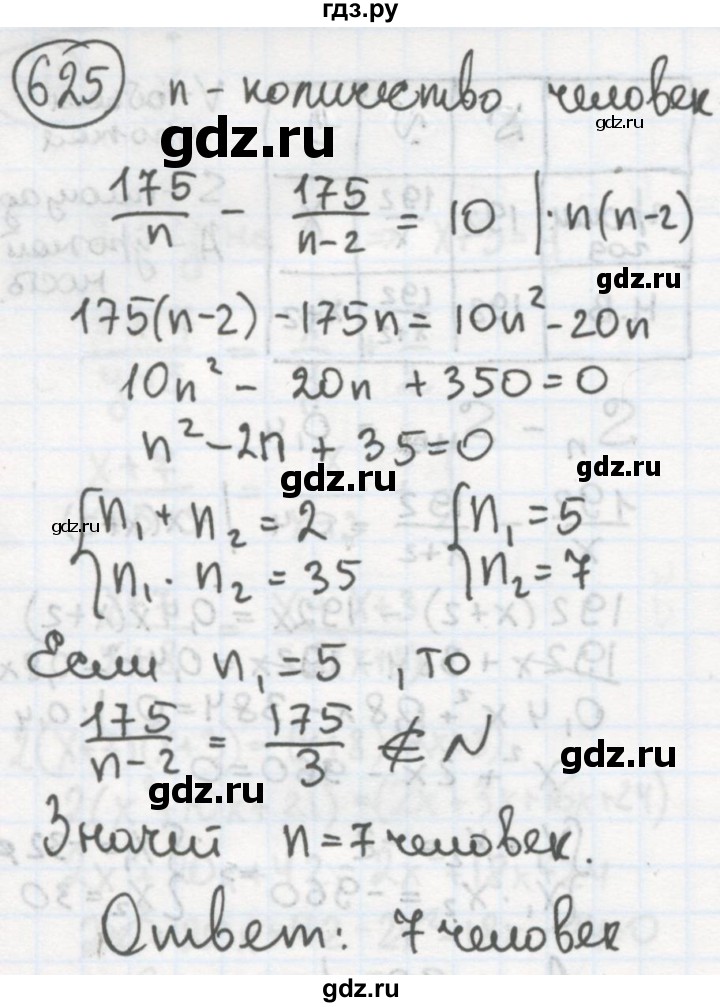 гдз.ру
625 n - количество человек
gdz.ru
gdz.ru
175/n - 175/(n-2) = 10 | · n(n-2)
gdz.ru
175(n-2) - 175n = 10n² - 20n
10n² - 20n + 350 = 0
n² - 2n + 35 = 0
gdz.ru
gdz.ru
gdz.ru
{ n₁ + n₂ = 2 { n₁ = 5
{ n₁ · n₂ = 35 { n₂ = 7
Если n₁ = 5, то
175/(n-2) = 175/3 ∉ N
gdz.ru
gdz.ru
Значит n = 7 человек.
gdz.ru
Ответ: 7 человек
gdz.ru